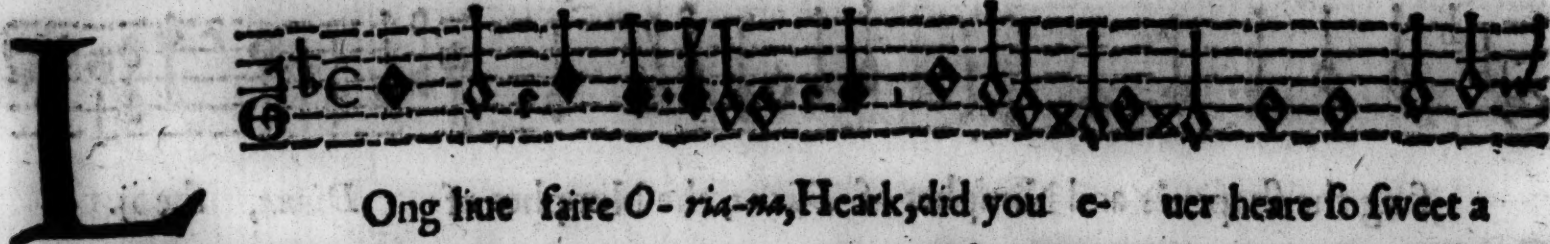 LOng liue faire O- ria-na, Heark, did you e- uer heare ſo ſweet a